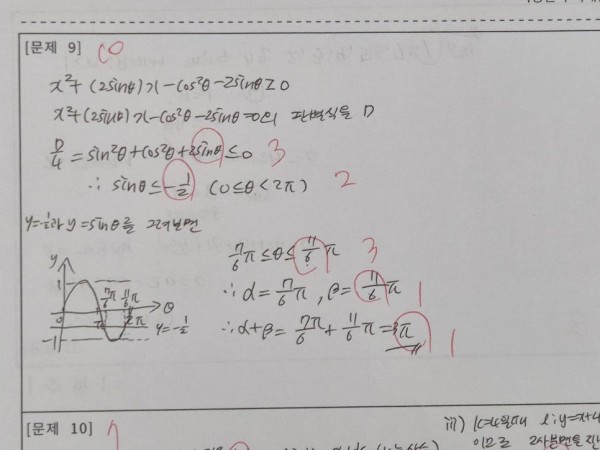 [문제 9] 10
x²+(2sinθ)x-cos²θ-2sinθ≥0
x²+(2sinθ)x-cos²θ-2sinθ=0의 판별식을 D
D/4=sin²θ+cos²θ+2sinθ≤0 3
∴ sinθ≤-1/2 (0≤θ<2π) 2
y=-1/2과 y=sinθ를 그려보면
7/6π≤θ≤11/6π 3
∴ α=7/6π, β=11/6π 1
∴ α+β=7π/6+11/6π=3π 1
y
1
7/6π 11/6π
0 π 2π θ
y=-1/2
-1
[문제 10] 7
iii) l:y=x+4
이므로 2사분면을